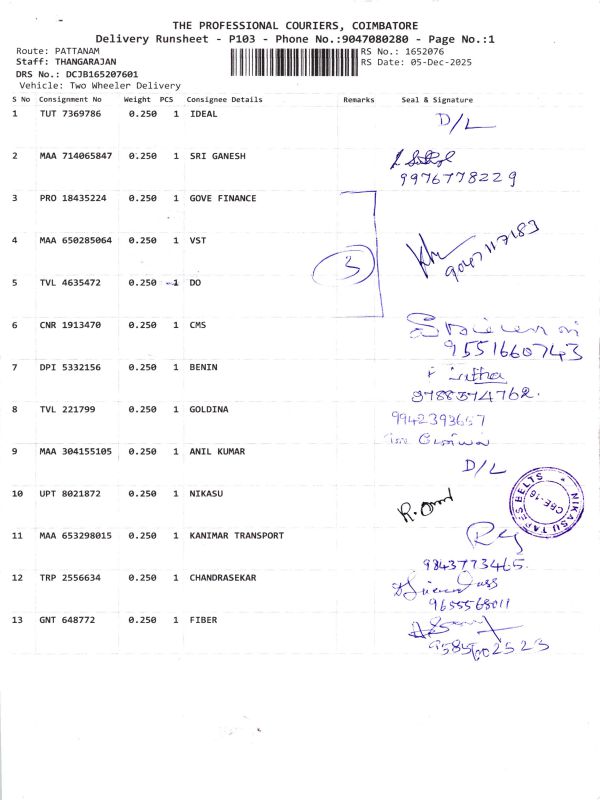 THE PROFESSIONAL COURIERS, COIMBATORE
Delivery Runsheet - P103 - Phone No.:9047080280 - Page No.:1
Route: PATTANAM RS No.: 1652076
Staff: THANGARAJAN RS Date: 05-Dec-2025
DRS No.: DCJB165207601
Vehicle: Two Wheeler Delivery
S No Consignment No Weight PCS Consignee Details Remarks Seal & Signature
1 TUT 7369786 0.250 1 IDEAL D/L
2 MAA 714065847 0.250 1 SRI GANESH
9976778229
3 PRO 18435224 0.250 1 GOVE FINANCE
4 MAA 650285064 0.250 1 VST 9047117183
3
5 TVL 4635472 0.250 1 DO
6 CNR 1913470 0.250 1 CMS
9551660743
7 DPI 5332156 0.250 1 BENIN
9788374762.
8 TVL 221799 0.250 1 GOLDINA 9942393657
9 MAA 304155105 0.250 1 ANIL KUMAR D/L
10 UPT 8021872 0.250 1 NIKASU
NIKASU TAPES BELTS
CBE-16
11 MAA 653298015 0.250 1 KANIMAR TRANSPORT
9843773465.
12 TRP 2556634 0.250 1 CHANDRASEKAR
9655568011
13 GNT 648772 0.250 1 FIBER